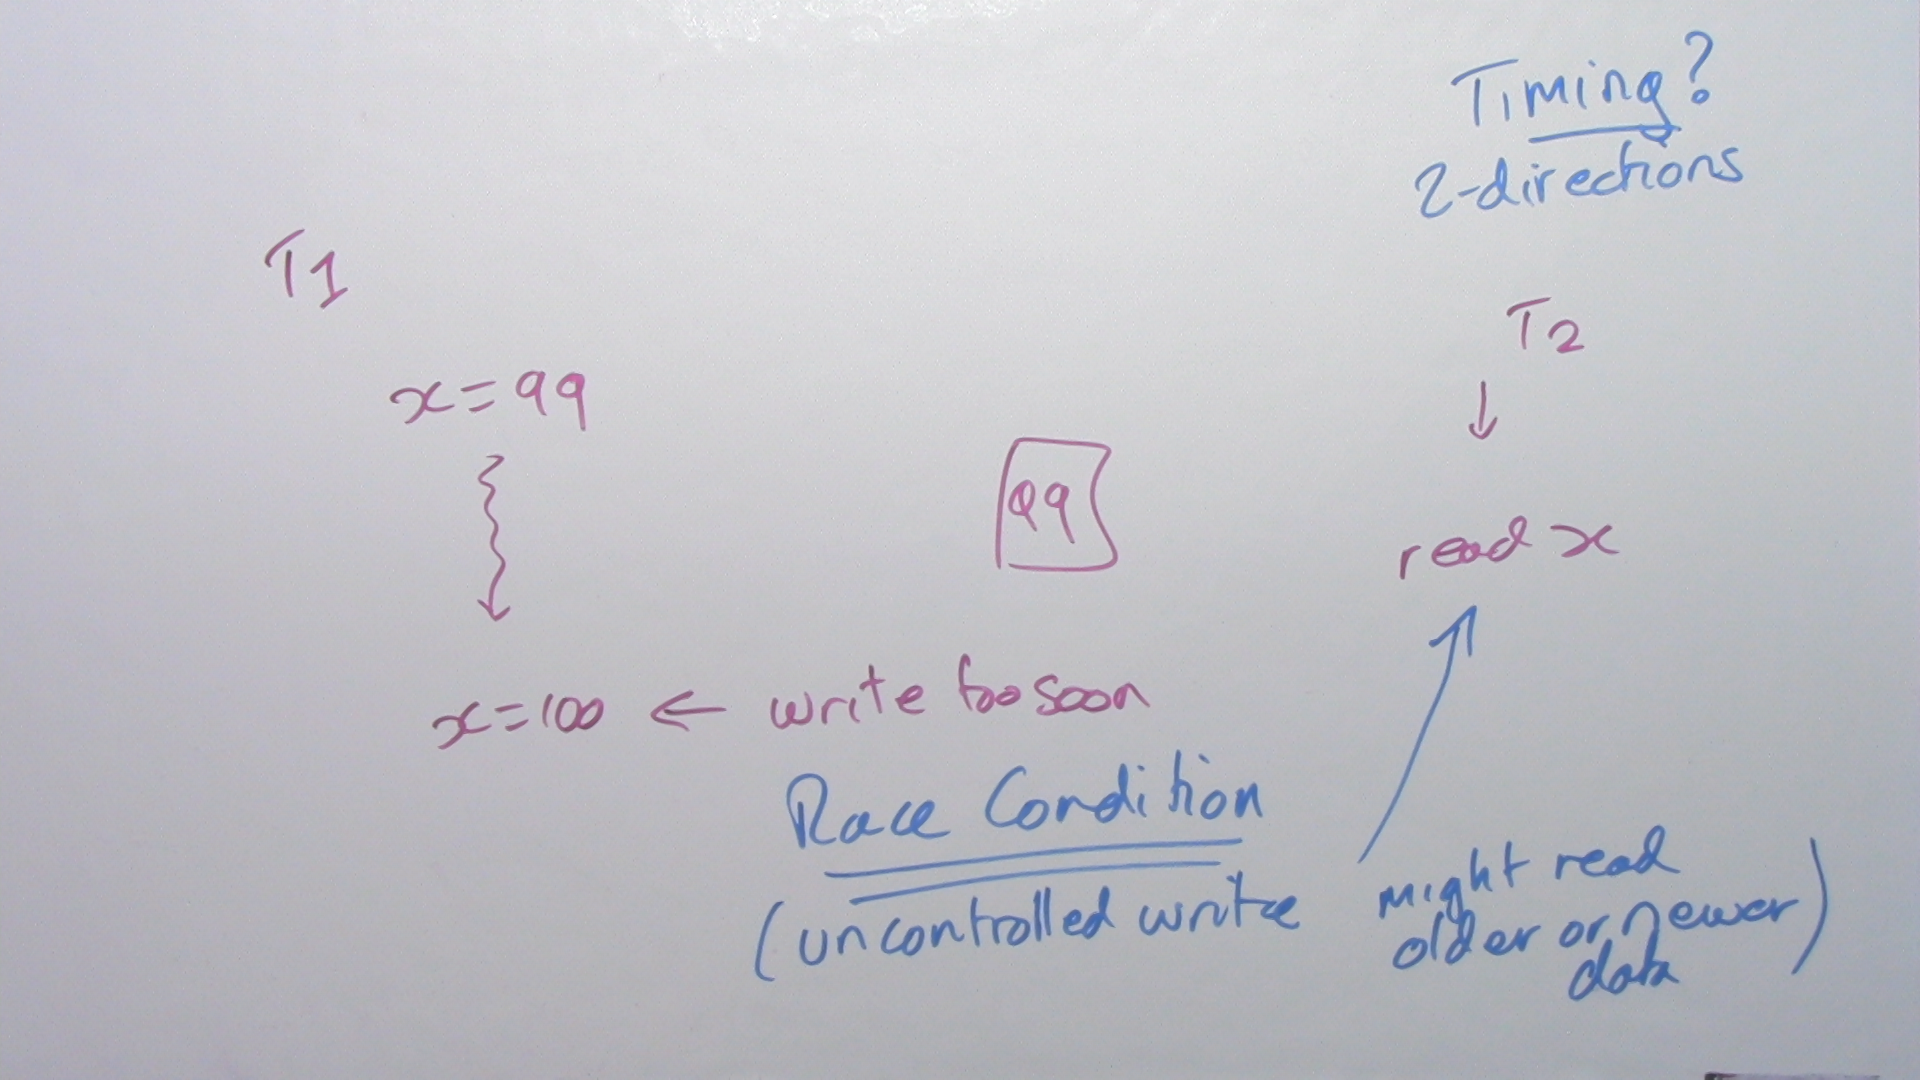 Timing?
2-directions
T1
T2
x=99
99
read x
x=100 ← write too soon
Race Condition
(uncontrolled write
might read
older or newer)
data